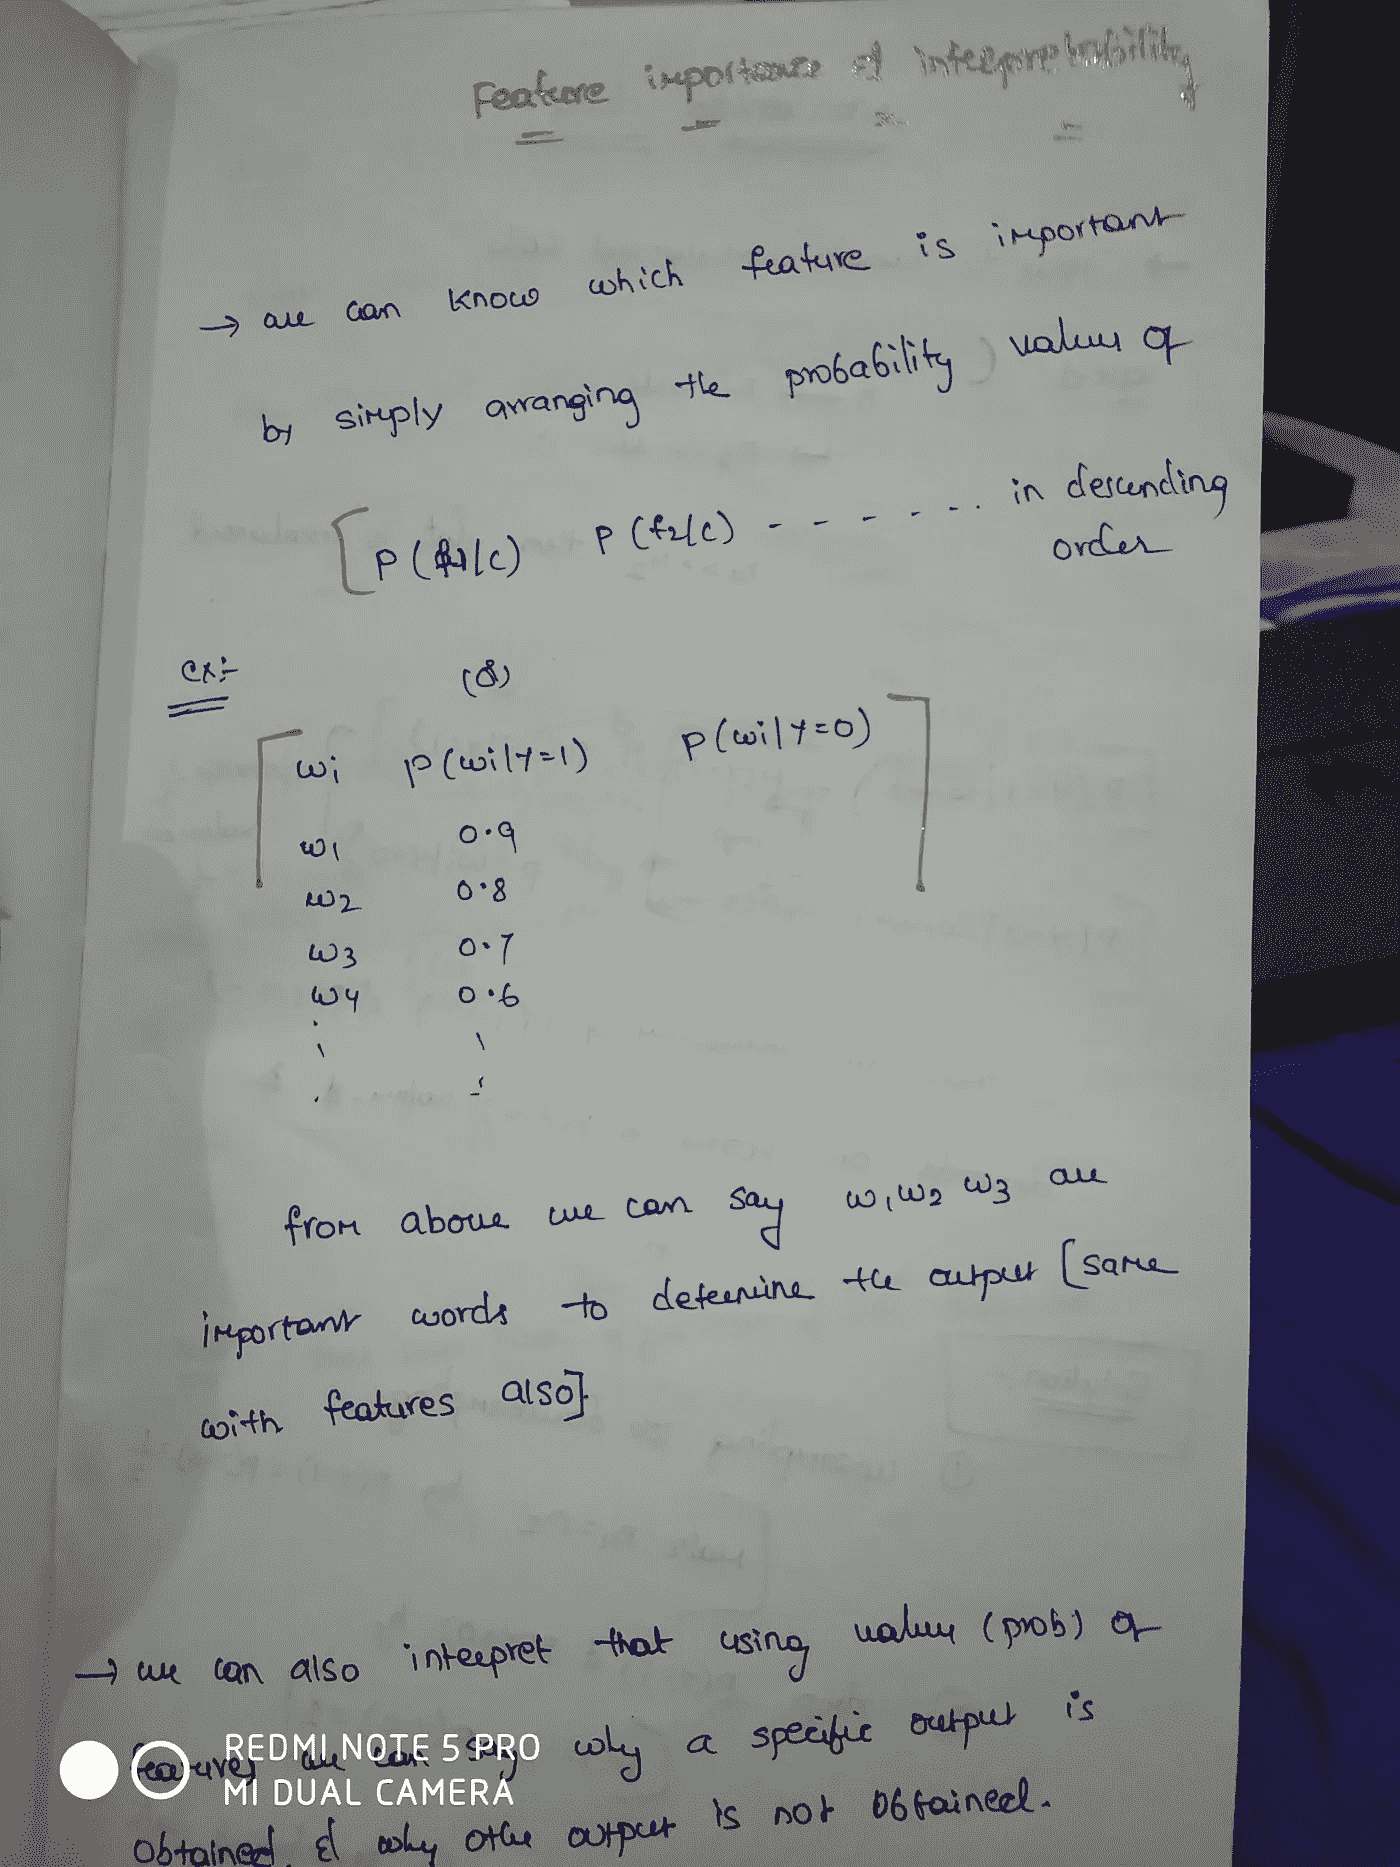 Feature importance & interpretability
→ we can know which feature is important
by simply arranging the probability values of
[P(f1/c) P(f2/c) - - - - - - .. in descending
order
ex:- (or)
[wi p(wi|y=1) p(wi|y=0)]
w1 0.9
w2 0.8
w3 0.7
w4 0.6
from above we can say w1 w2 w3 are
important words to determine the output [same
with features also]
→ we can also interpret that using values (prob) of
features we can say why a specific output is
obtained & why other output is not obtained.
REDMI NOTE 5 PRO
MI DUAL CAMERA